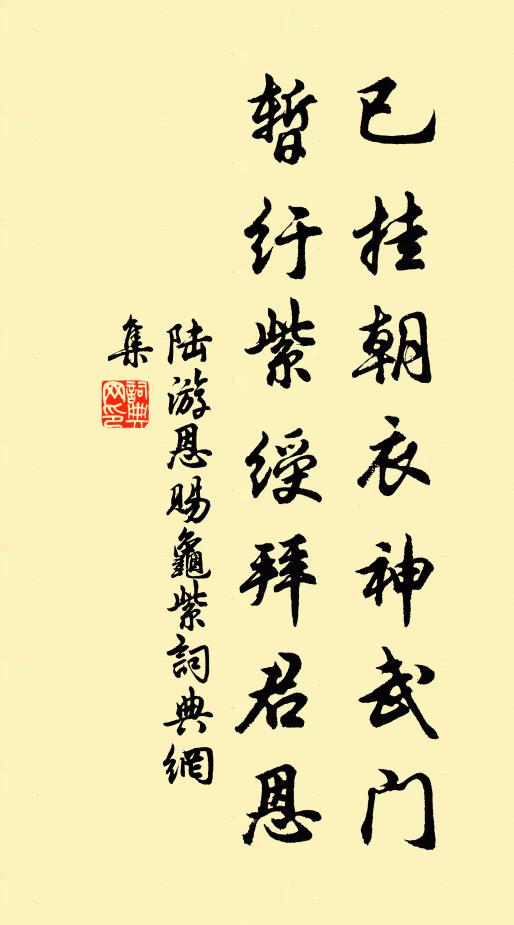 已挂朝衣神武门
暂纡紫绶拜君恩
陆游恩赐龜紫詞典網
集
詞典网印